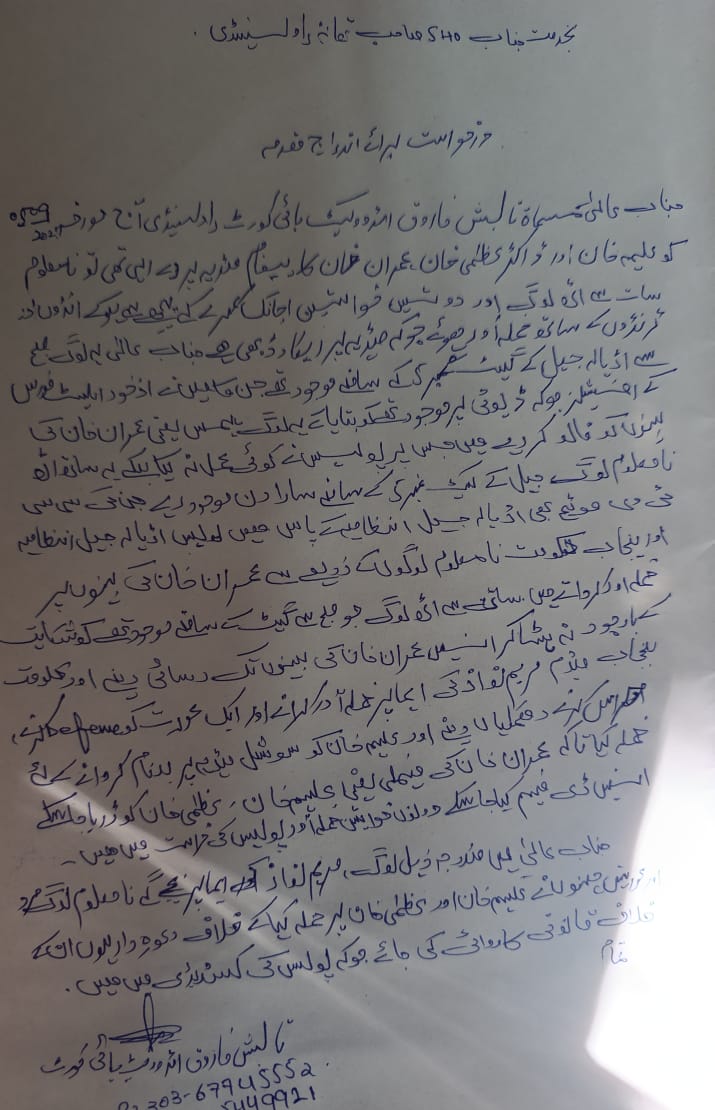 بخدمت جناب SHO صاحب تھانہ راولپنڈی۔
درخواست برائے اندراج مقدمہ
جناب عالیٰ مسماۃ تابش فاروق ایڈووکیٹ ہائی کورٹ راولپنڈی آج مورخہ
کو علیمہ خان اور ڈاکٹر عظمیٰ خان، عمران خان کا پیغام میڈیا پر دے رہی تھی تو نامعلوم
سات سے آٹھ لوگ اور دو تین خواتین اچانک انڈوں اور
کے ساتھ حملہ آور ہوئے جو کہ میڈیا پر ریکارڈ بھی ہے جناب عالیٰ یہ لوگ صبح
سے اڈیالہ جیل کے گیٹ کے سامنے موجود تھے جن سائلین نے از خود ایلیٹ فورس
کے آفیشلز جو کہ ڈیوٹی پر موجود تھے کو بتایا کہ یہ لوگ ہمیں یعنی عمران خان کی
بہنوں کو فالو کر رہے ہیں جس پر پولیس نے کوئی عمل نہ کیا بلکہ یہ سات آٹھ
نامعلوم لوگ جیل کے گیٹ نمبر 5 کے سامنے سارا دن موجود رہے جن کی سی سی
ٹی وی فوٹیج بھی اڈیالہ جیل انتظامیہ کے پاس ہیں پولیس اڈیالہ جیل انتظامیہ
اور پنجاب حکومت نامعلوم لوگوں کے ذریعے سے عمران خان کی بہنوں پر
حملہ آور کرواتے ہیں۔ سات سے آٹھ لوگ جو صبح سے گیٹ کے سامنے موجود تھے کو شکایت
کے باوجود نہ ہٹا کر انہیں عمران خان کی بہنوں تک رسائی دینے اور حکومت
پنجاب میڈم مریم نواز کی ایما پر حملہ آور کرانے اور ایک عورت کو defame کرنے،
ہراس کرنے دھمکیاں دینے اور علیمہ خان کو سوشل میڈیا پر بدنام کروانے کے لئے
حملہ کیا تاکہ عمران خان کی فیملی یعنی علیمہ خان، عظمیٰ خان کو ڈرایا جا سکے
انہیں ڈی فیم کیا جا سکے دونوں خواتین حملہ آور پولیس کی حراست میں ہیں۔
جناب عالیٰ میں مندرجہ ذیل لوگ، مریم نواز کی ایما پر بھیجے گے نامعلوم لوگ
اور عورتیں جنہوں نے علیمہ خان اور عظمیٰ خان پر حملہ کیا کے خلاف دعویٰ دار ہوں ان کے
خلاف قانونی کاروائی کی جائے جو کہ پولیس کی کسٹڈی میں ہیں۔
تابش فاروق ایڈووکیٹ ہائی کورٹ
303-67945552
5449921